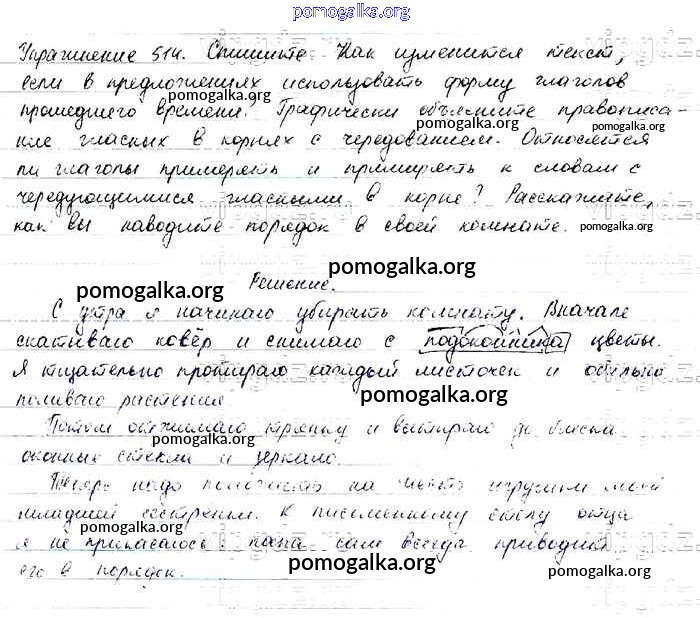 pomogalka.org
Упражнение 514. Спишите. Как изменится текст,
если в предложениях использовать форму глаголов
pomogalka.org
прошедшего времени? Графически объясните правописа-
pomogalka.org pomogalka.org
ние гласных в корнях с чередованием. Относятся
ли глаголы примерять и примирять к словам с
чередующимися гласными в корне? Расскажите,
как вы наводите порядок в своей комнате. pomogalka.org
pomogalka.org
Решение.
pomogalka.org
С утра я начинаю убирать комнату. Вначале
скатываю ковёр и снимаю с подоконника цветы.
pomogalka.org
Я тщательно протираю каждый листочек и обильно
поливаю растения. pomogalka.org
Потом отжимаю тряпку и вытираю до блеска
pomogalka.org
оконные стёкла и зеркало.
Теперь надо положить на место игрушки моей
младшей сестрёнки. К письменному столу отца
pomogalka.org
я не прикасаюсь: папа сам всегда приводит
его в порядок. pomogalka.org pomogalka.org